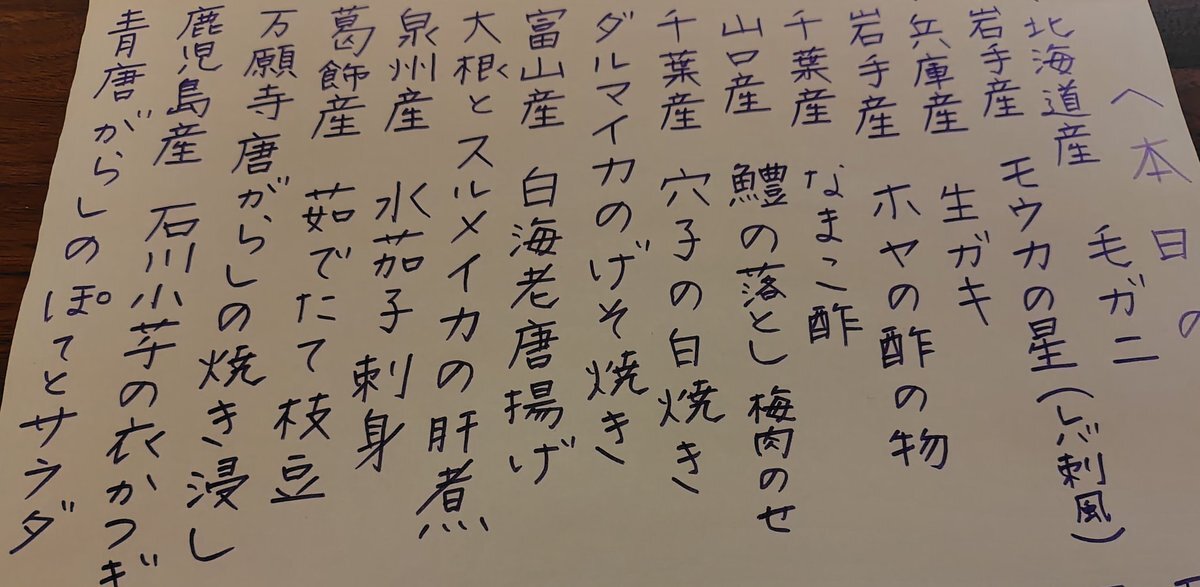 〈本日の
北海道産 毛ガニ
岩手産 モウカの星(レバ刺風)
兵庫産 生ガキ
岩手産 ホヤの酢の物
千葉産 なまこ酢
山口産 鱧の落とし 梅肉のせ
千葉産 穴子の白焼き
ダルマイカのげそ焼き
富山産 白海老唐揚げ
大根とスルメイカの肝煮
泉州産 水茄子刺身
葛飾産 茹でたて枝豆
万願寺唐がらしの焼き浸し
鹿児島産 石川小芋の衣かつぎ
青唐がらしのぽてとサラダ